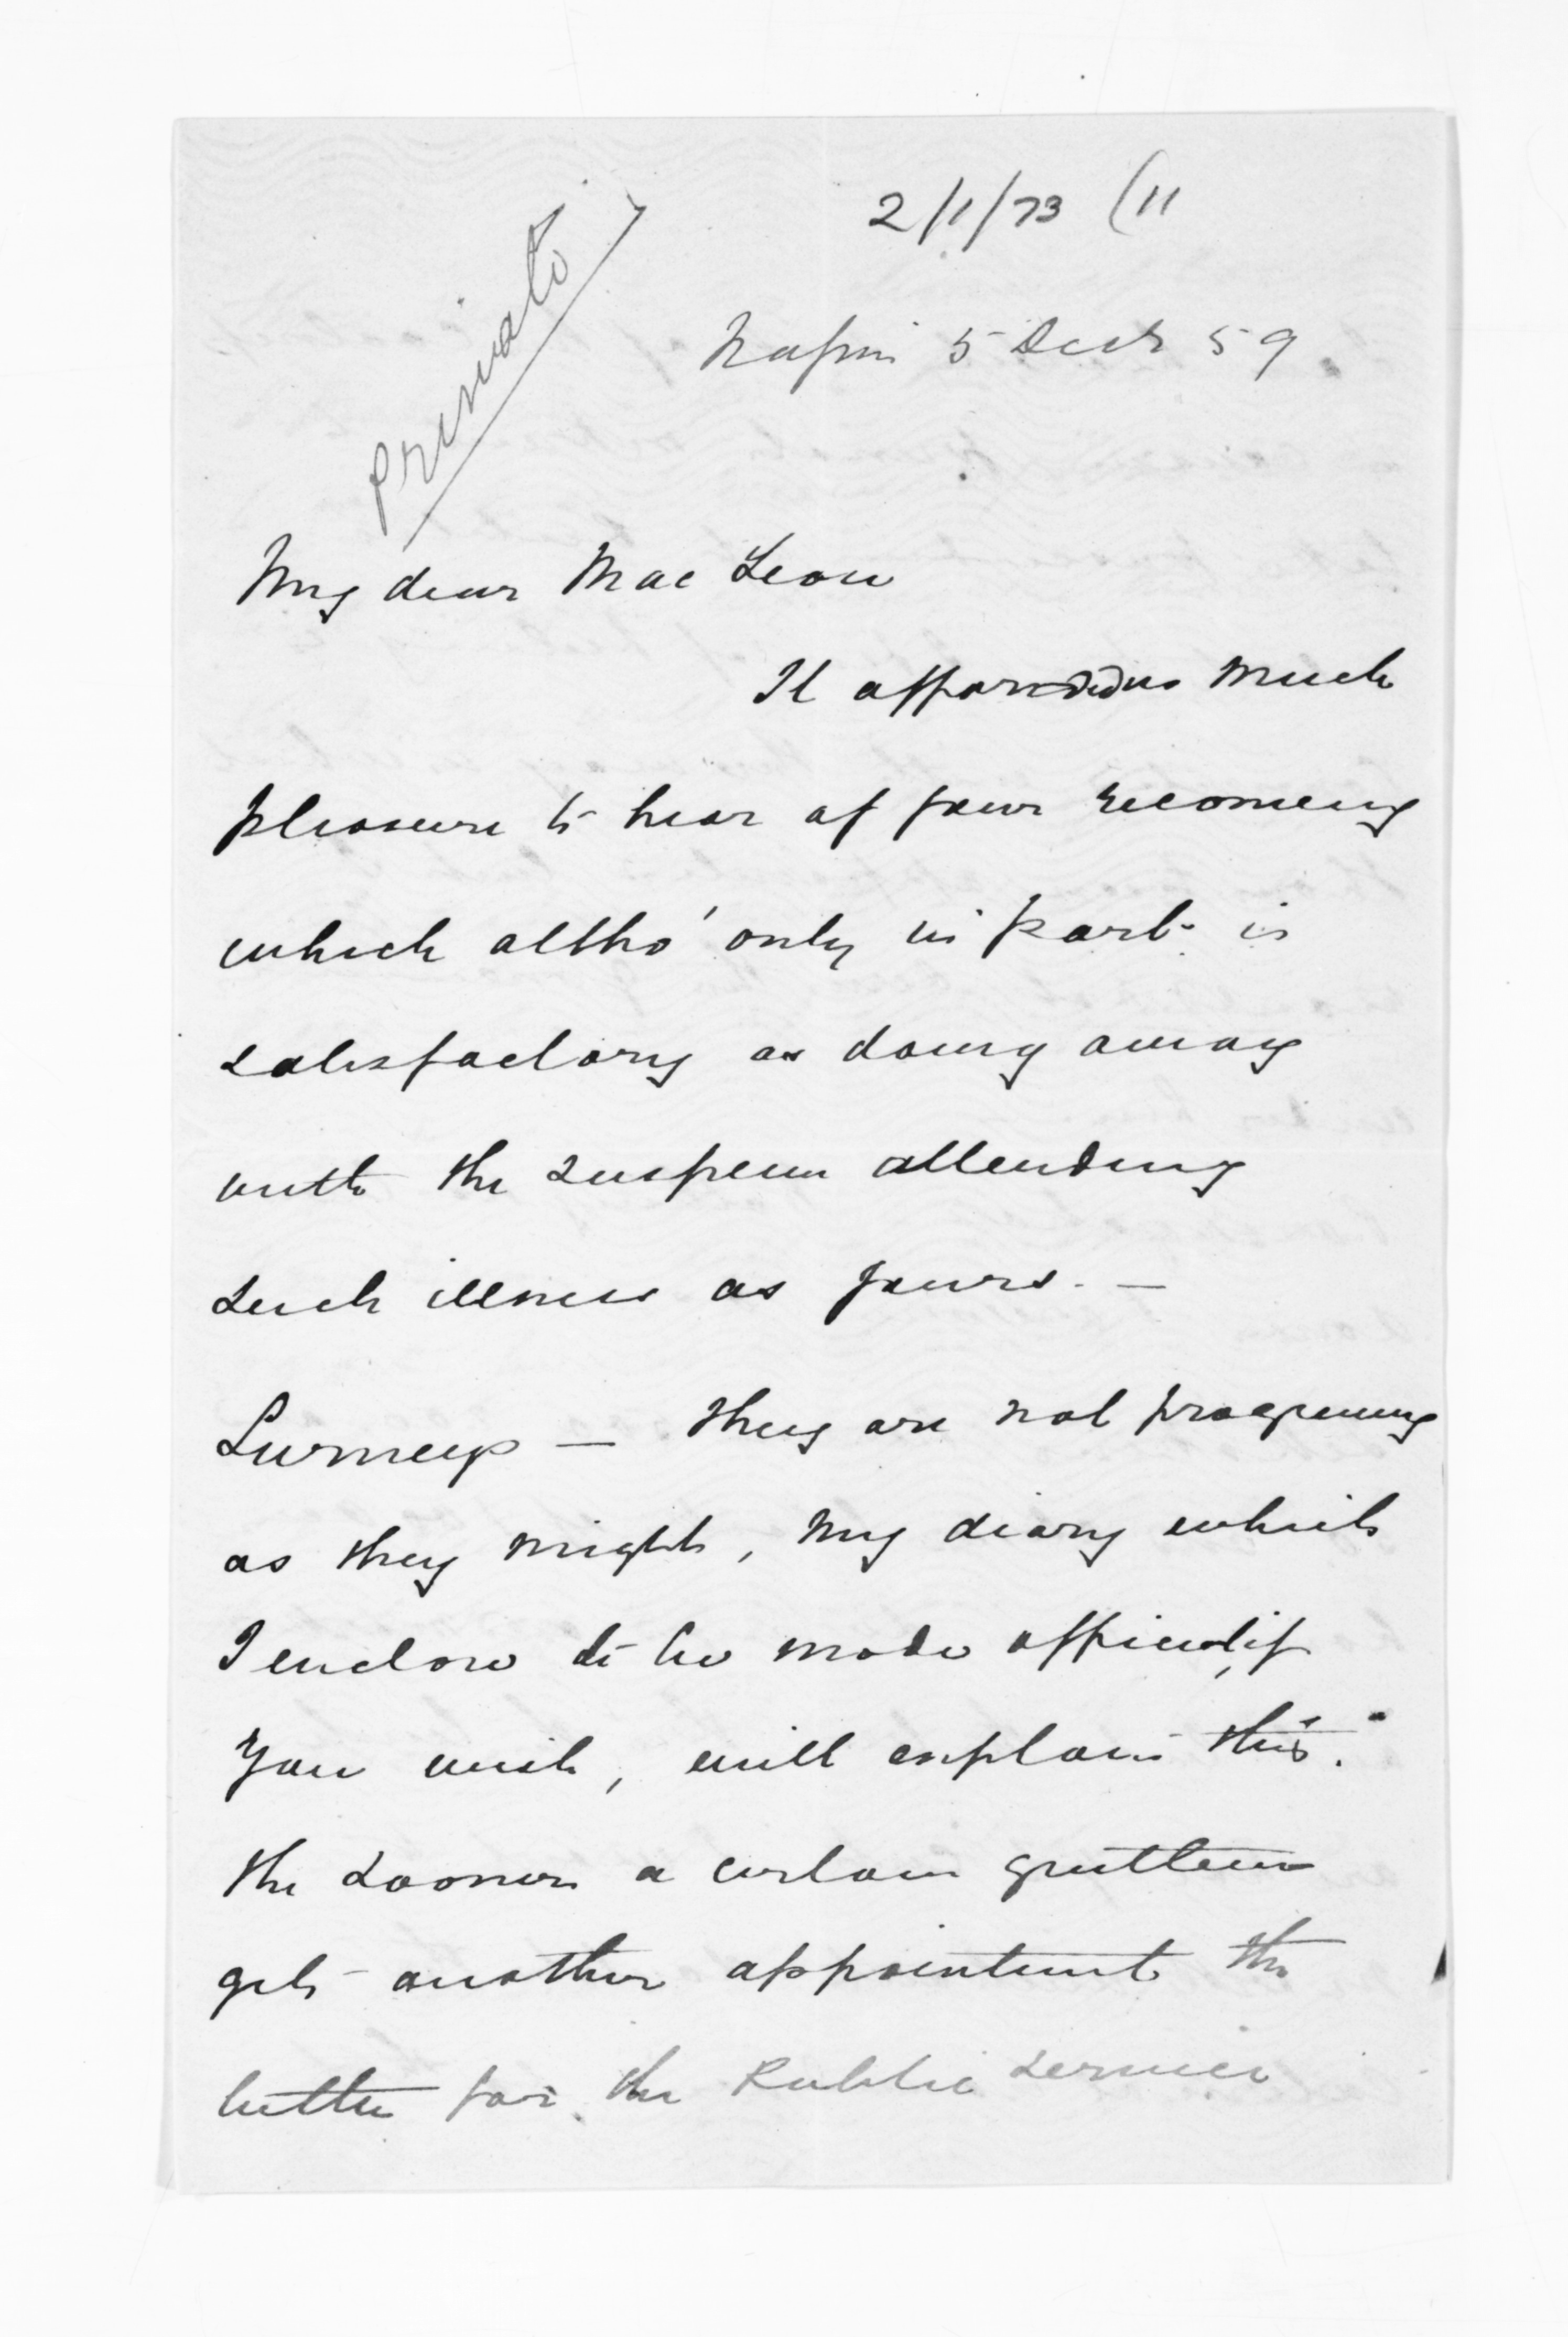 2/1/73 (11
Private
Napier 5 Decr 59
My dear Mac Lean
It affords us much
pleasure to hear of your recovery
which altho' only in part is
satisfactory as doing away
with the suspense attending
such illness as yours. —
Surveys — They are not progressing
as they might, My diary which
I enclose to be made official, if
you wish, will explain this.
the sooner a certain gentleman
gets another appointment the
better for the Public Service